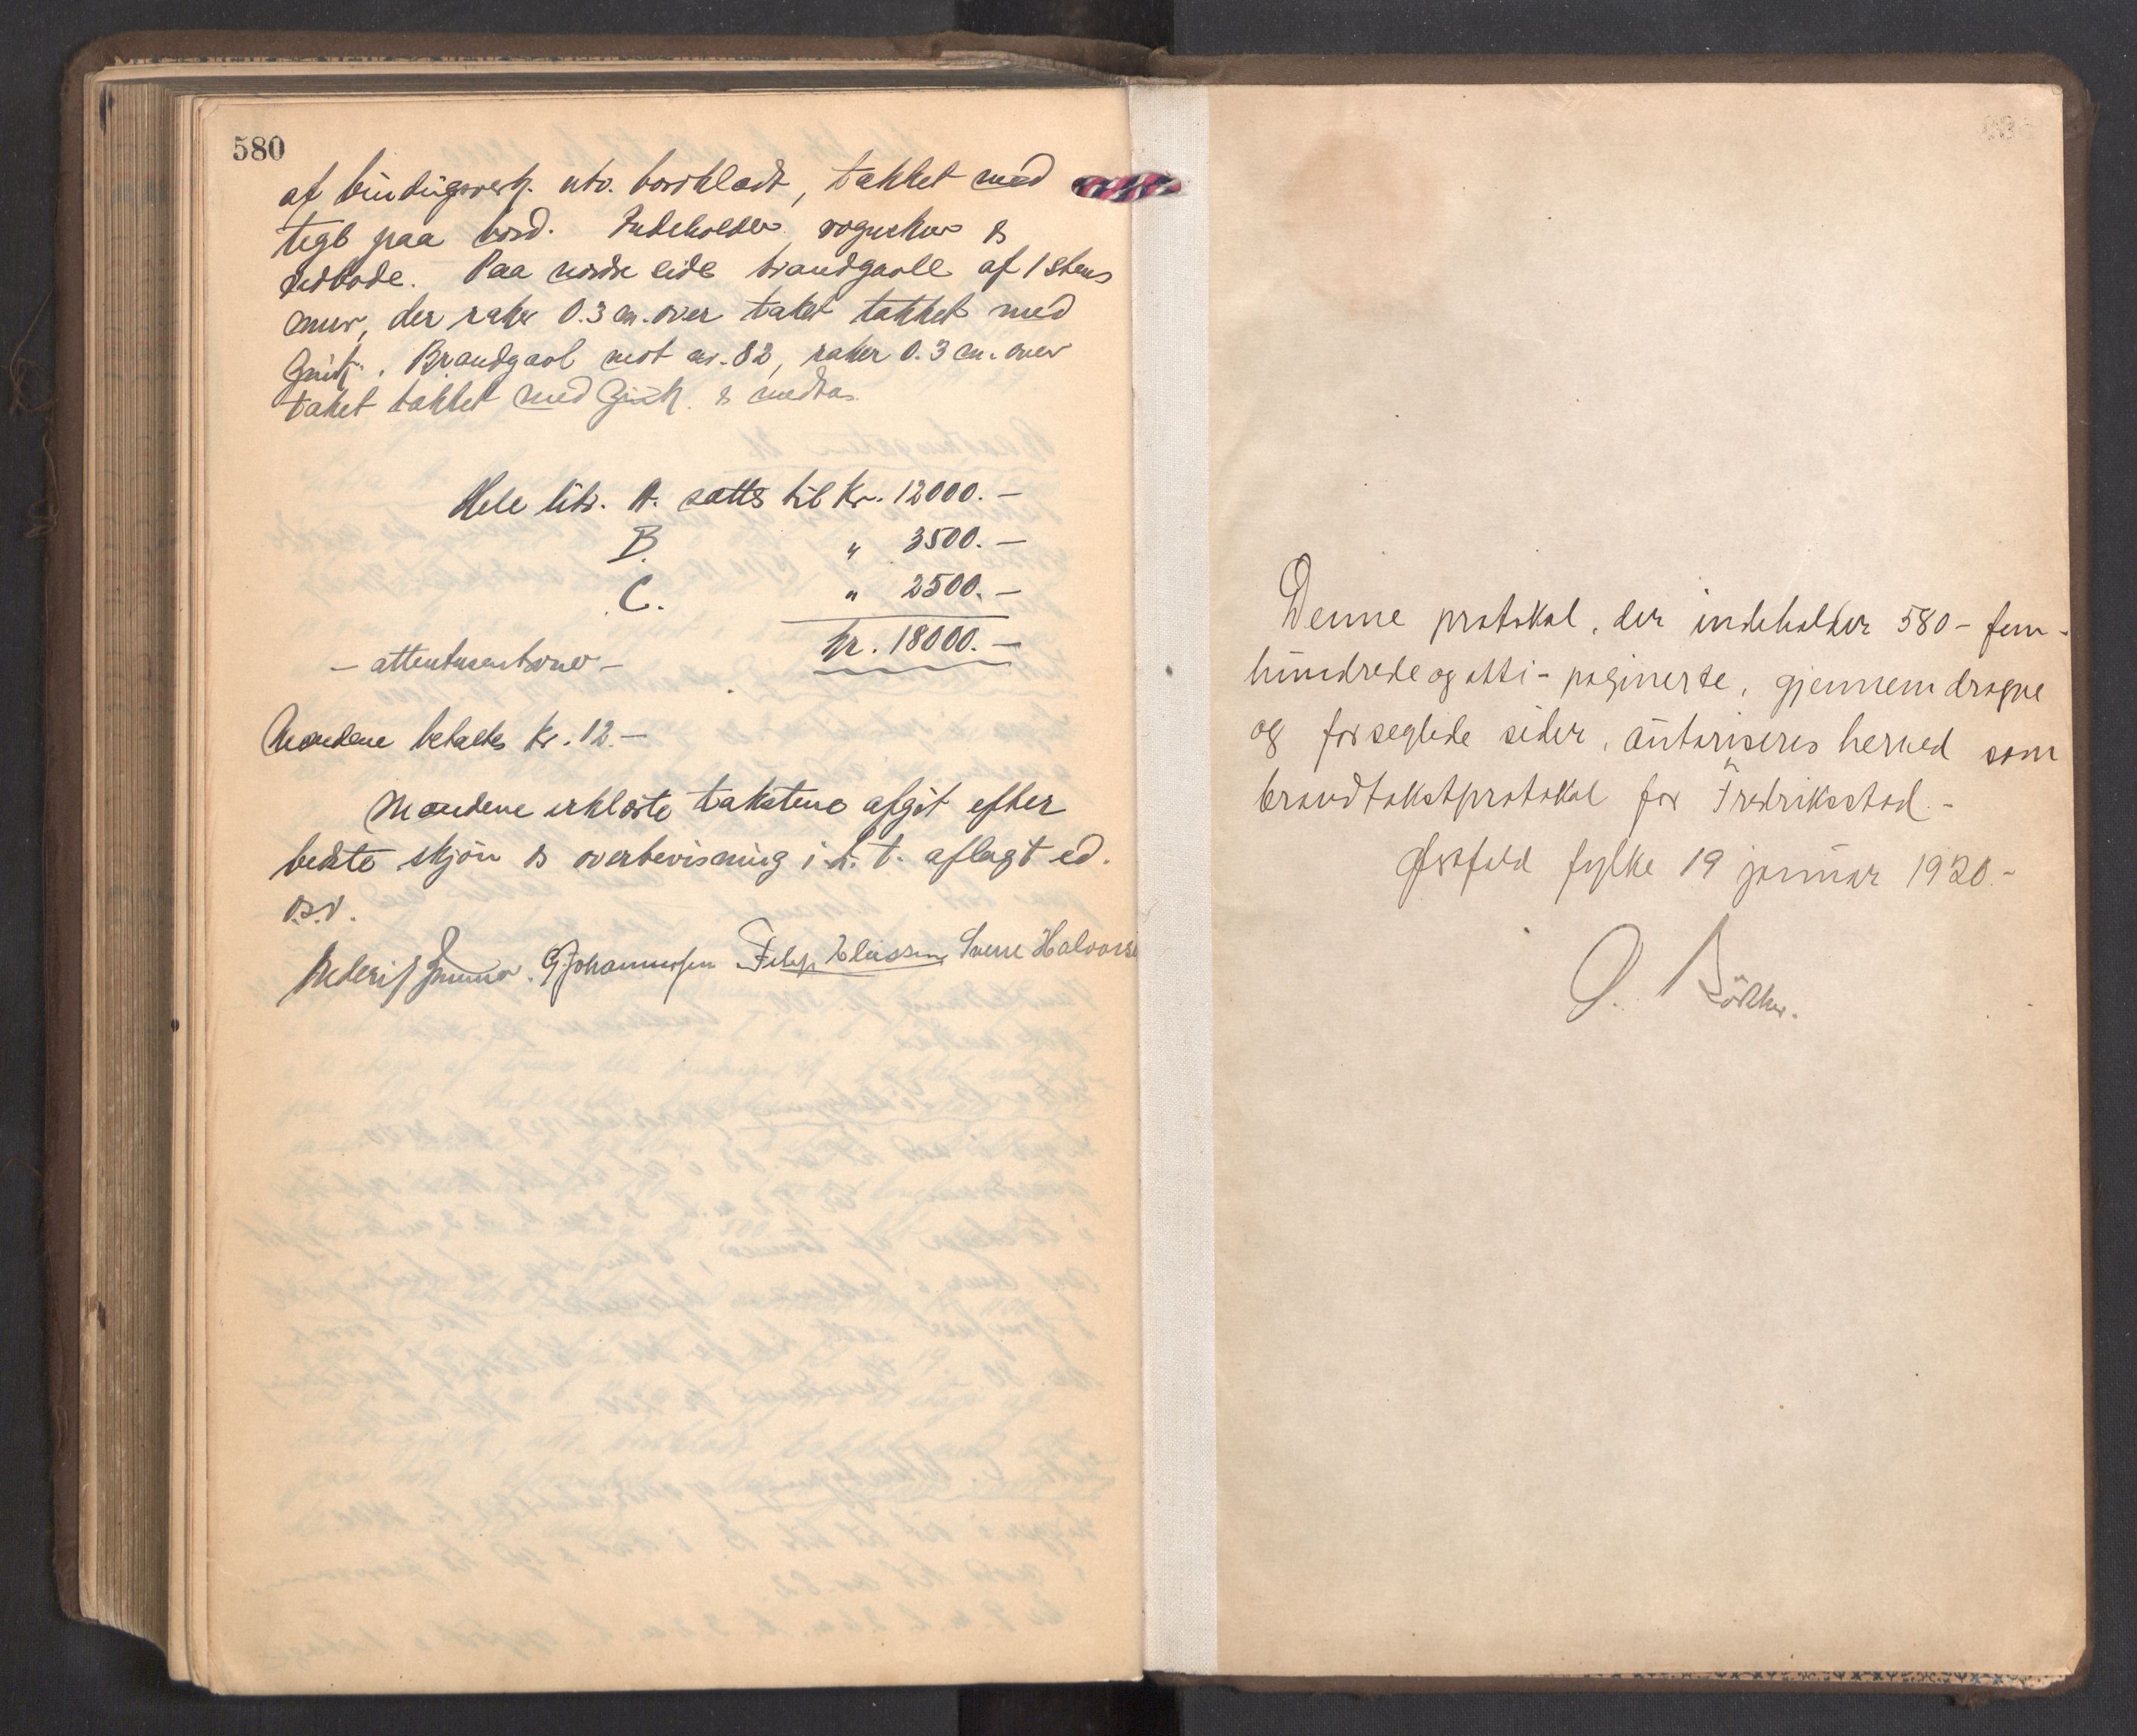 580
af bindingsverk. utv. bordklædt, tækket med
tegl paa bord. Indeholder vognskur &
vedbode. Paa nordre side brandgavl af 1 stens
mur, der raker 0.3 m. over taket tækket med
zink. Brandgavl mot nr. 82, raker 0.3 m. over
taket tækket med zink &
Hele litr. A. sattes til Kr. 12000.—
B. " 3500.—
C. " 2500.—
kr. 18000.—
— attentusen kroner —
Mændene betaltes kr. 12.—
Mændene erklærte takstene afgit efter
bedste skjøn & overbevisning i h. t. aflagt ed.
G Johannessen Filip Eliassen Sverre Halvorse
Denne protokol, der indeholder 580 - fem-
hundrede og otti - paginerte, gjennemdragne
og forseglede sider, autoriseres herved som
brandtakstprotokol for Fredriksstad. -
Østfold fylke 19 januar 1920.-
O.